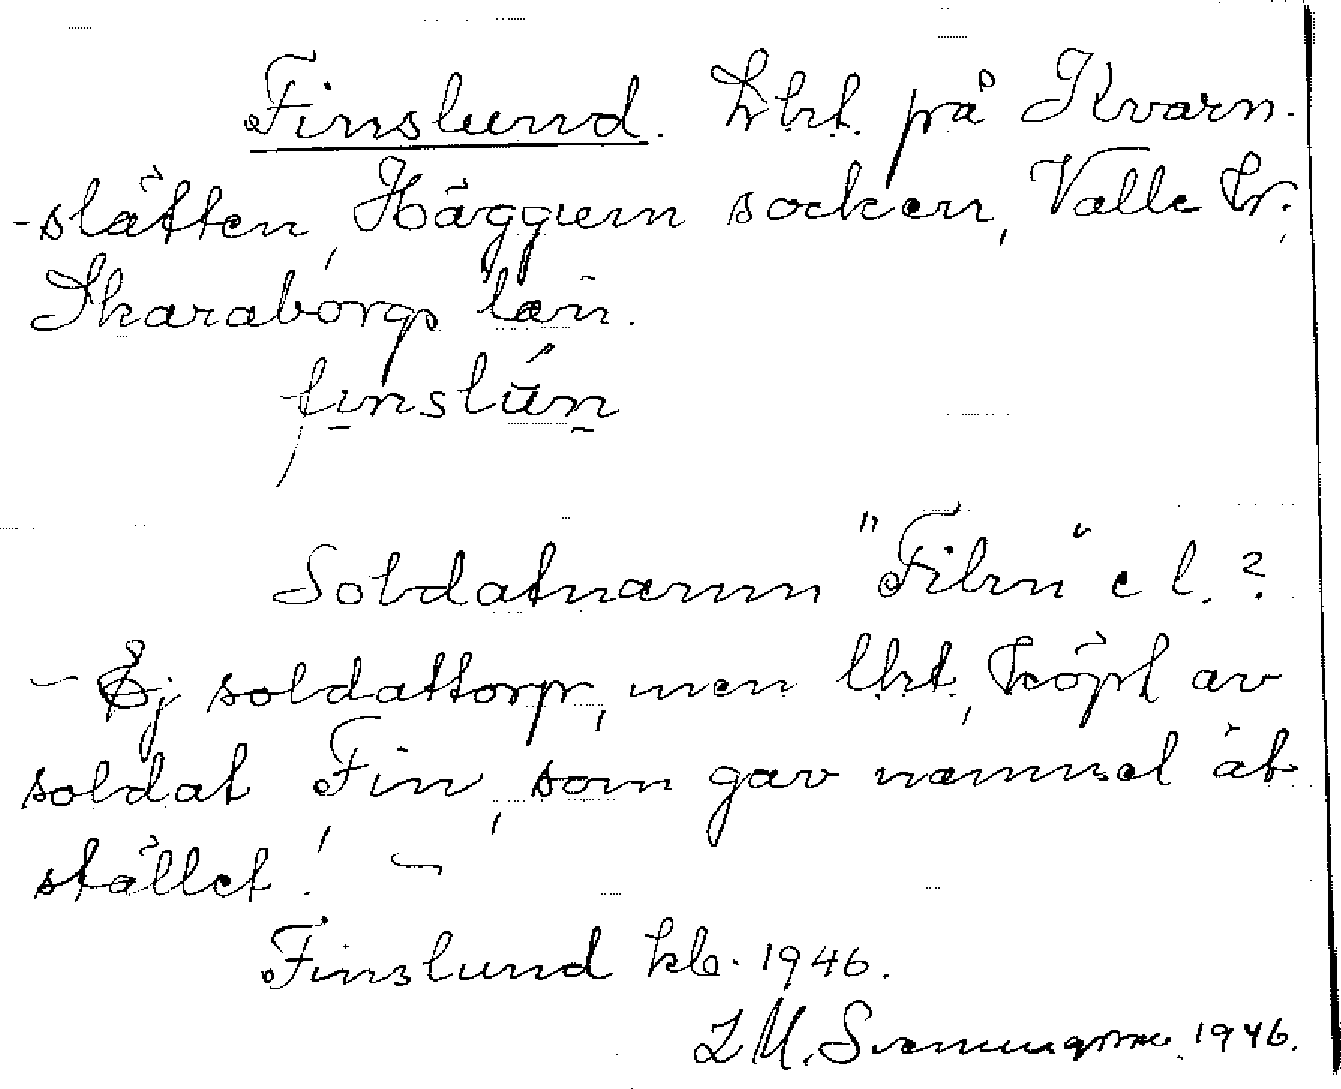 Finslund. Lht. på Kvarn-
-slätten, Häggum socken, Valle hr.,
Skaraborgs län.
finslun
Soldatnamn "Filn" e l. ?
- Ej soldattorp, men lht, köpt av
soldat Fin, som gav namnet åt
stället! -
Finslund kb. 1946.
Svenungsson 1946.